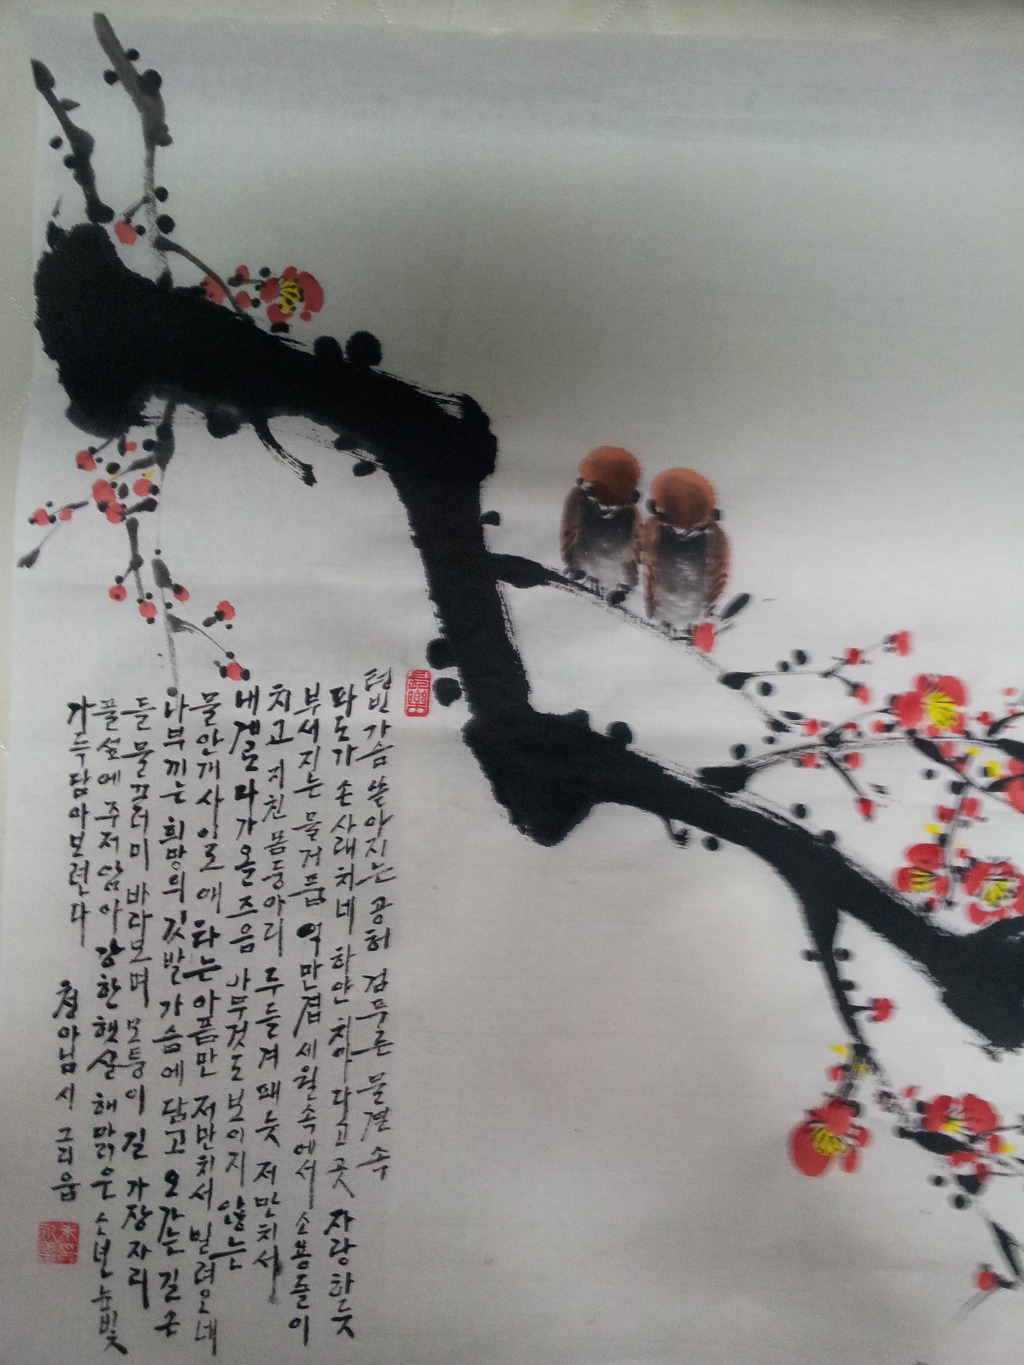 텅빈가슴 쏟아지는 공허 검푸른 물결 속
파도가 손사래치네 하얀 치아 다고곳 자랑하듯
부서지는 물거품 억만겁 세월속에서 소용돌이
치고 지친 몸둥아리 두들겨패듯 저만치서
내게로 다가올즈음 아무것도 보이지 않는
물안개사이로 애타는아픔만 저만치서 밀려오네
나부끼는 희망의 깃발 가슴에 담고 오가는 길손
들 물끄러미 바라보며 모퉁이 길 가장자리
풀섶에 주저앉아 강한햇살 해맑은 소년눈빛
가득담아보련다
청아님 시 그리움